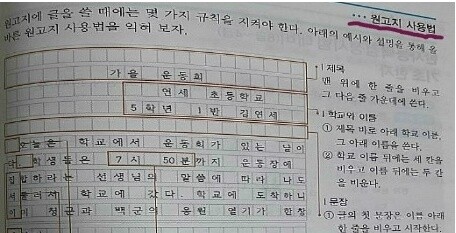 ··· 원고지 사용법
원고지에 글을 쓸 때에는 몇 가지 규칙을 지켜야 한다. 아래의 예시와 설명을 통해 올
바른 원고지 사용법을 익혀 보자.
가을 운동회
연세 초등학교
5학년 1반 김연세
오늘은 학교에서 운동회가 있는 날이
다. 학생들은 7시 50분까지 운동장에
집합하라는 선생님의 말씀에 따라 나도
서둘러서 학교에 갔다. 학교에 도착하니
이미 청군과 백군의 응원 열기가 한창
1 제목
맨 위에 한 줄을 비우고
그 다음 줄 가운데에 쓴다.
1 학교와 이름
① 제목 바로 아래 학교 이름,
그 아래 이름을 쓴다.
② 학교 이름 뒤에는 세 칸을
비우고 이름 뒤에는 두 칸
을 비운다.
1 문장
① 글의 첫 문장은 이름 아래
한 줄을 비우고 시작한다.